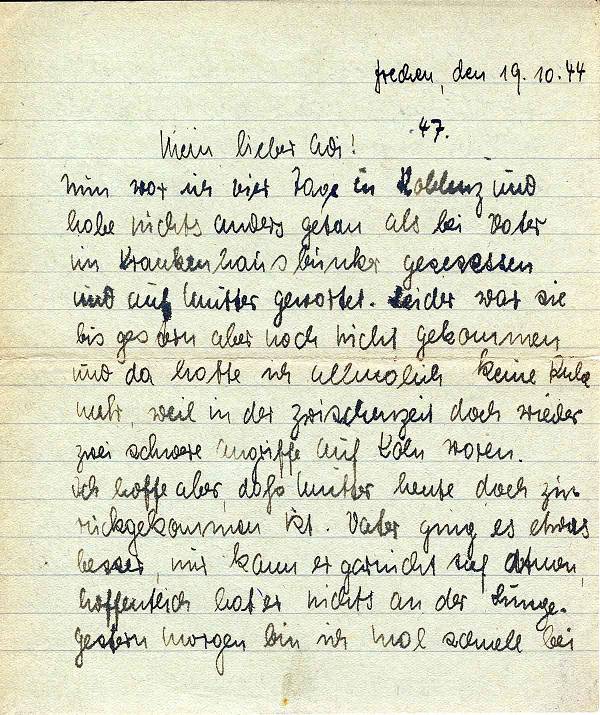 Frechen, den 19.10.44
47.
Mein lieber Adi!
Nun war ich vier Tage in Koblenz und
habe nichts anders getan als bei Vater
im Krankenhausbunker gesessen
und auf Mutter gewartet. Leider war sie
bis gestern aber noch nicht gekommen
und da hatte ich allmälich keine Ruhe
mehr, weil in der Zwischenzeit doch wieder
zwei schwere Angriffe auf Köln waren.
Ich hoffe aber, daß Mutter heute doch zu-
rückgekommen ist. Vater ging es etwas
besser, nur kann er garnicht tief atmen,
hoffentlich hat er nichts an der Lunge.
Gestern morgen bin ich mal schnell bei